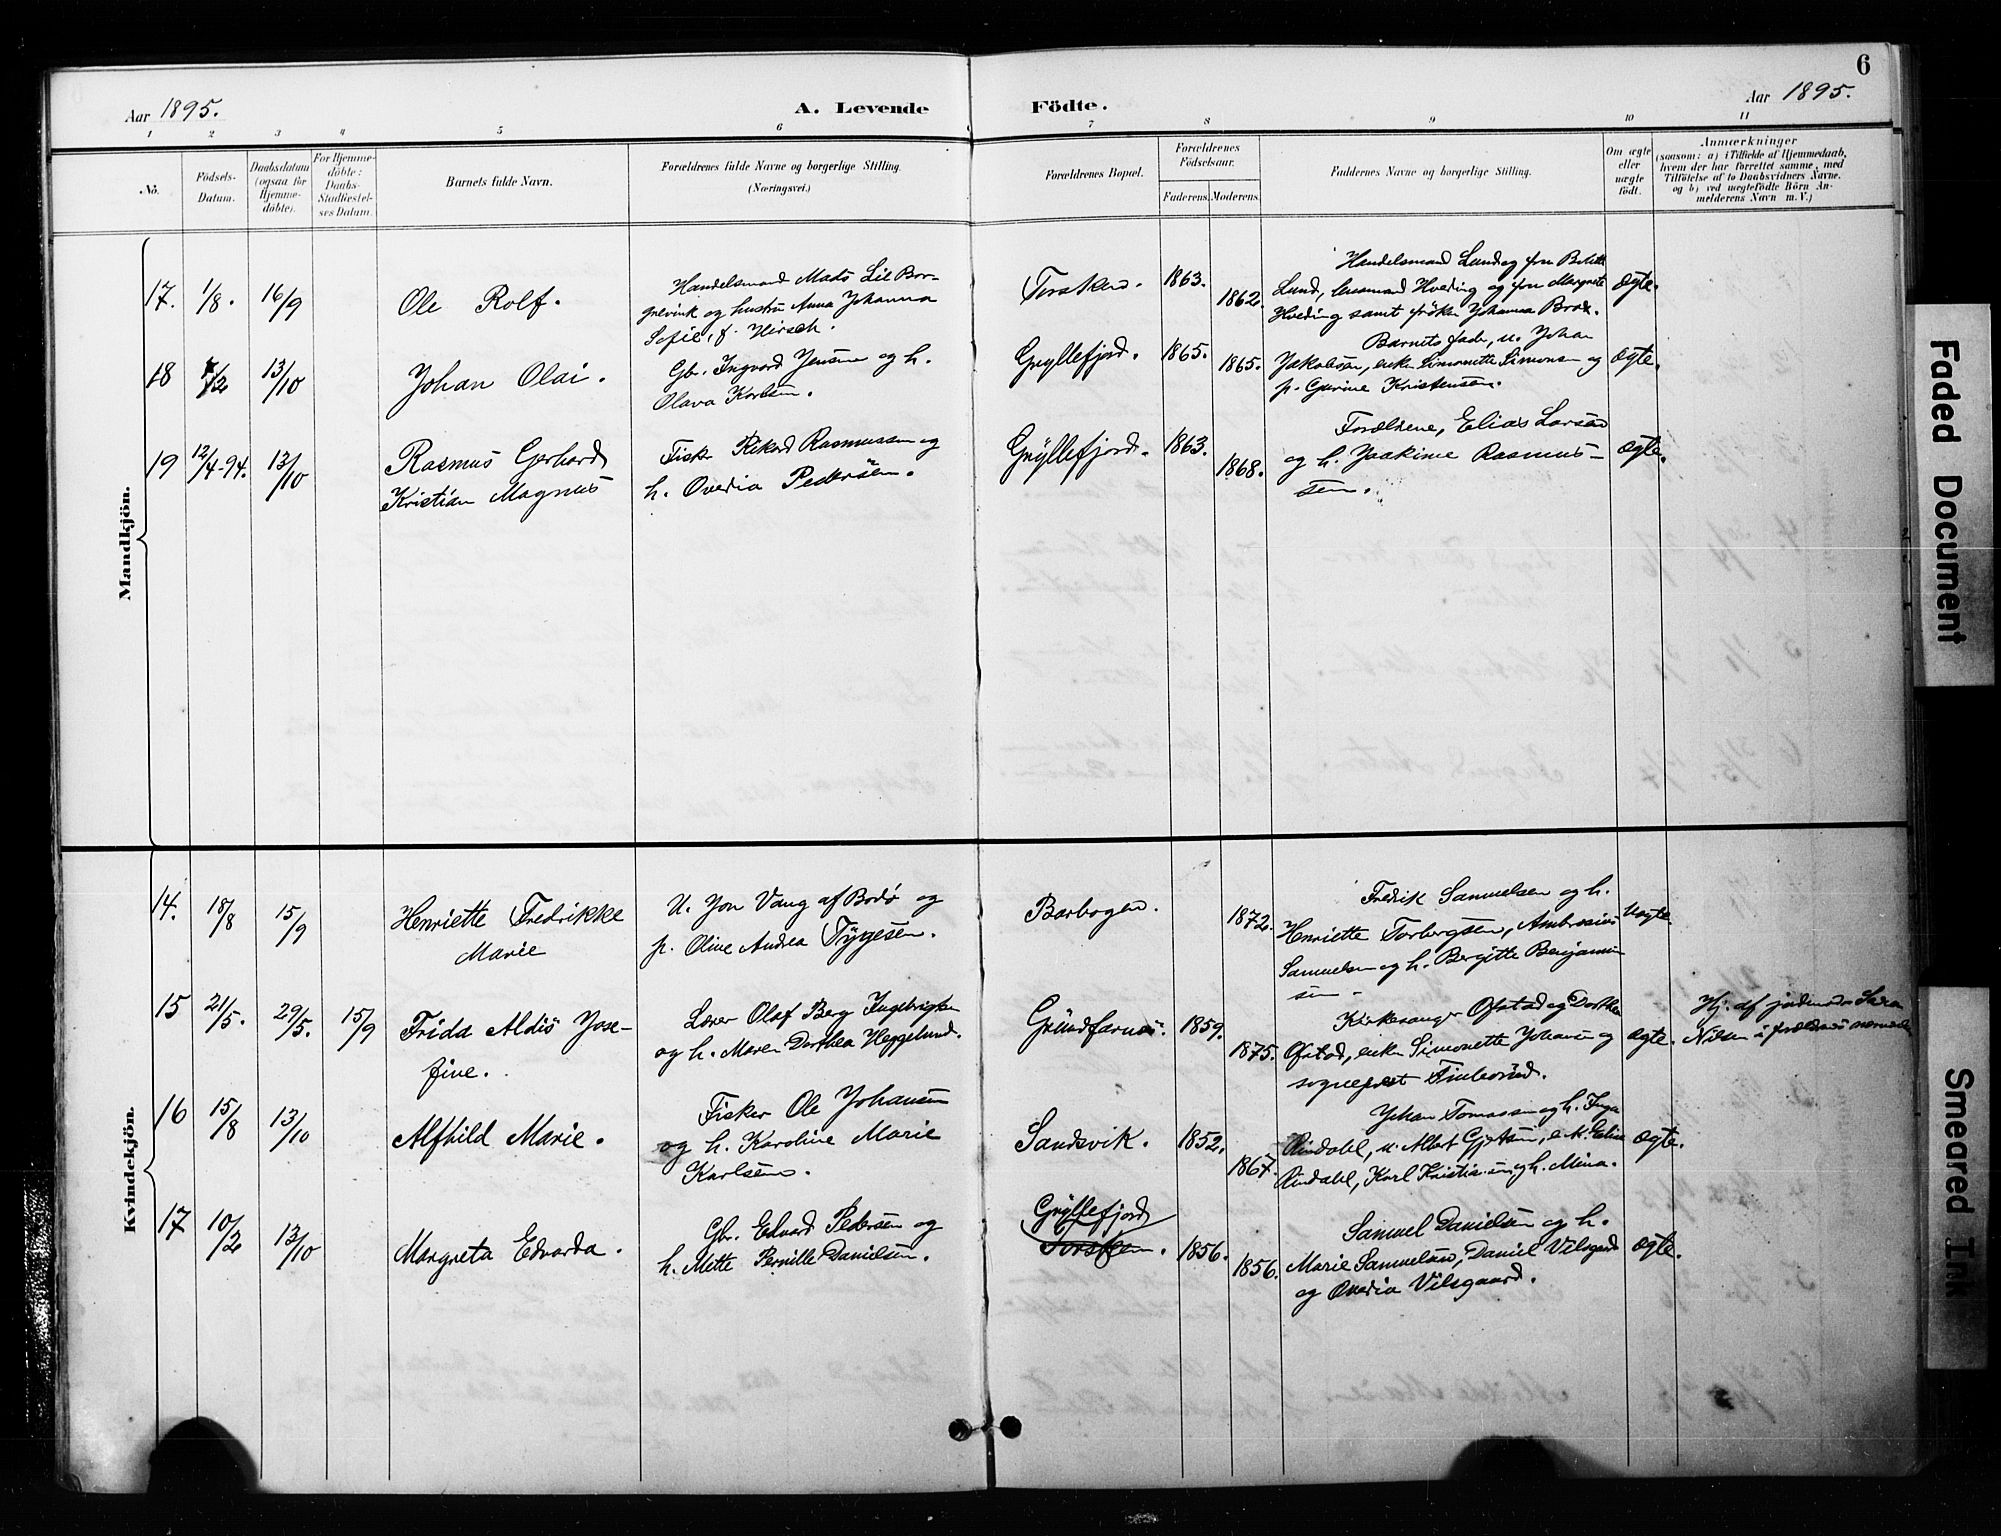 6
Aar 1895.
A. Levende
Födte.
Aar 1895.
1 2 3 4 5 6 7 8 9 10 11
No.
Födsels-
Datum.
Daabsdatum
(ogsaa for
Hjemme-
döbte).
For Hjemme-
döbte:
Daabs-
Stadfæstel-
ses Datum.
Barnets fulde Navn.
Forældrenes fulde Navne og borgerlige Stilling.
(Næringsvei.)
Forældrenes Bopæl.
Forældrenes
Födselsaar.
Faderens.
Moderens.
Faddernes Navne og borgerlige Stilling.
Om ægte
eller
uægte
födt.
Anmærkninger
(saasom: a) i Tilfælde af Hjemmedaab,
hvem der har forrettet samme, med
Tilföielse af to Daabsvidners Navne.
og b) ved uægtefödte Börn An-
melderens Navn m. V.)
Mandkjön.
17. 1/8. 16/9
Ole Rolf.
Handelsmand Mads Lie Bor-
grevink og hustru Anna Johanna
Sofie, f. Hirsch.
Torsken.
1863.
1862.
Handelsmand Lund og fru
Lund, lensmand Hveding og fru Margrete
Hveding samt frøken Johanna Brox.
ægte.
18 7/2 13/10
Johan Olai.
Gb. Ingvard Jensen og h.
Olava Karlsen.
Gryllefjord.
1865.
1865.
Barnets fader, u. Johan
Jakobsen, enke Simonette Simonsen og
p. Gurine Kristensen.
ægte.
19 12/4-94. 13/10
Rasmus Gerhard
Kristian Magnus
Fisker Rikard Rasmussen og
h. Ovedia Pedersen.
Gryllefjord.
1863.
1868.
Forældrene, Elias Larsen
og h. Joakime Rasmus-
sen.
ægte.
Kvindekjön.
14. 18/8 15/9
Henriette Fredrikke
Marie
U. Jon Vang af Bodø og
p. Oline Andrea Tygesen.
Barbogen.
1872.
Fredik Samuelsen og h.
Henriette Torbergsen, Ambrosius
Samuelsen og h. Bergitte Benjamin
sen.
Uægte.
15 21/5. 29/5. 15/9
Frida Aldis Jose-
fine.
Lærer Olaf Berg Ingebrigtsen
og h. Maren Dorthea Heggelund.
Grundfarnes.
1859.
1875.
Kirkesanger Ofstad og Dorthea
Ofstad, enke Simonette Johansen og
sogneprest
ægte.
Hj. af jordmor Sara
Nilsen i forældres nærværelse
16 15/8 13/10
Alfhild Marie.
Fisker Ole Johansen
og h. Karoline Marie
Karlsen.
Sandsvik.
1852.
1867.
Johan Tomassen og h. Inga
Rindahl, u. Albet Gjertsen, Eline
Rindahl, Karl Kristiansen og h. Mina.
ægte.
17 10/2 13/10
Margreta Edvarda.
Gb. Edvard Pedersen og
h. Mette Pernille Danielsen.
Gryllefjord
Torsken.
1856.
1856.
Samuel Danielsen og h.
Marie Samuelsen, Daniel Vilsgaard
og Ovedia Vilsgaard.
ægte.
Faded Document
Smeared Ink